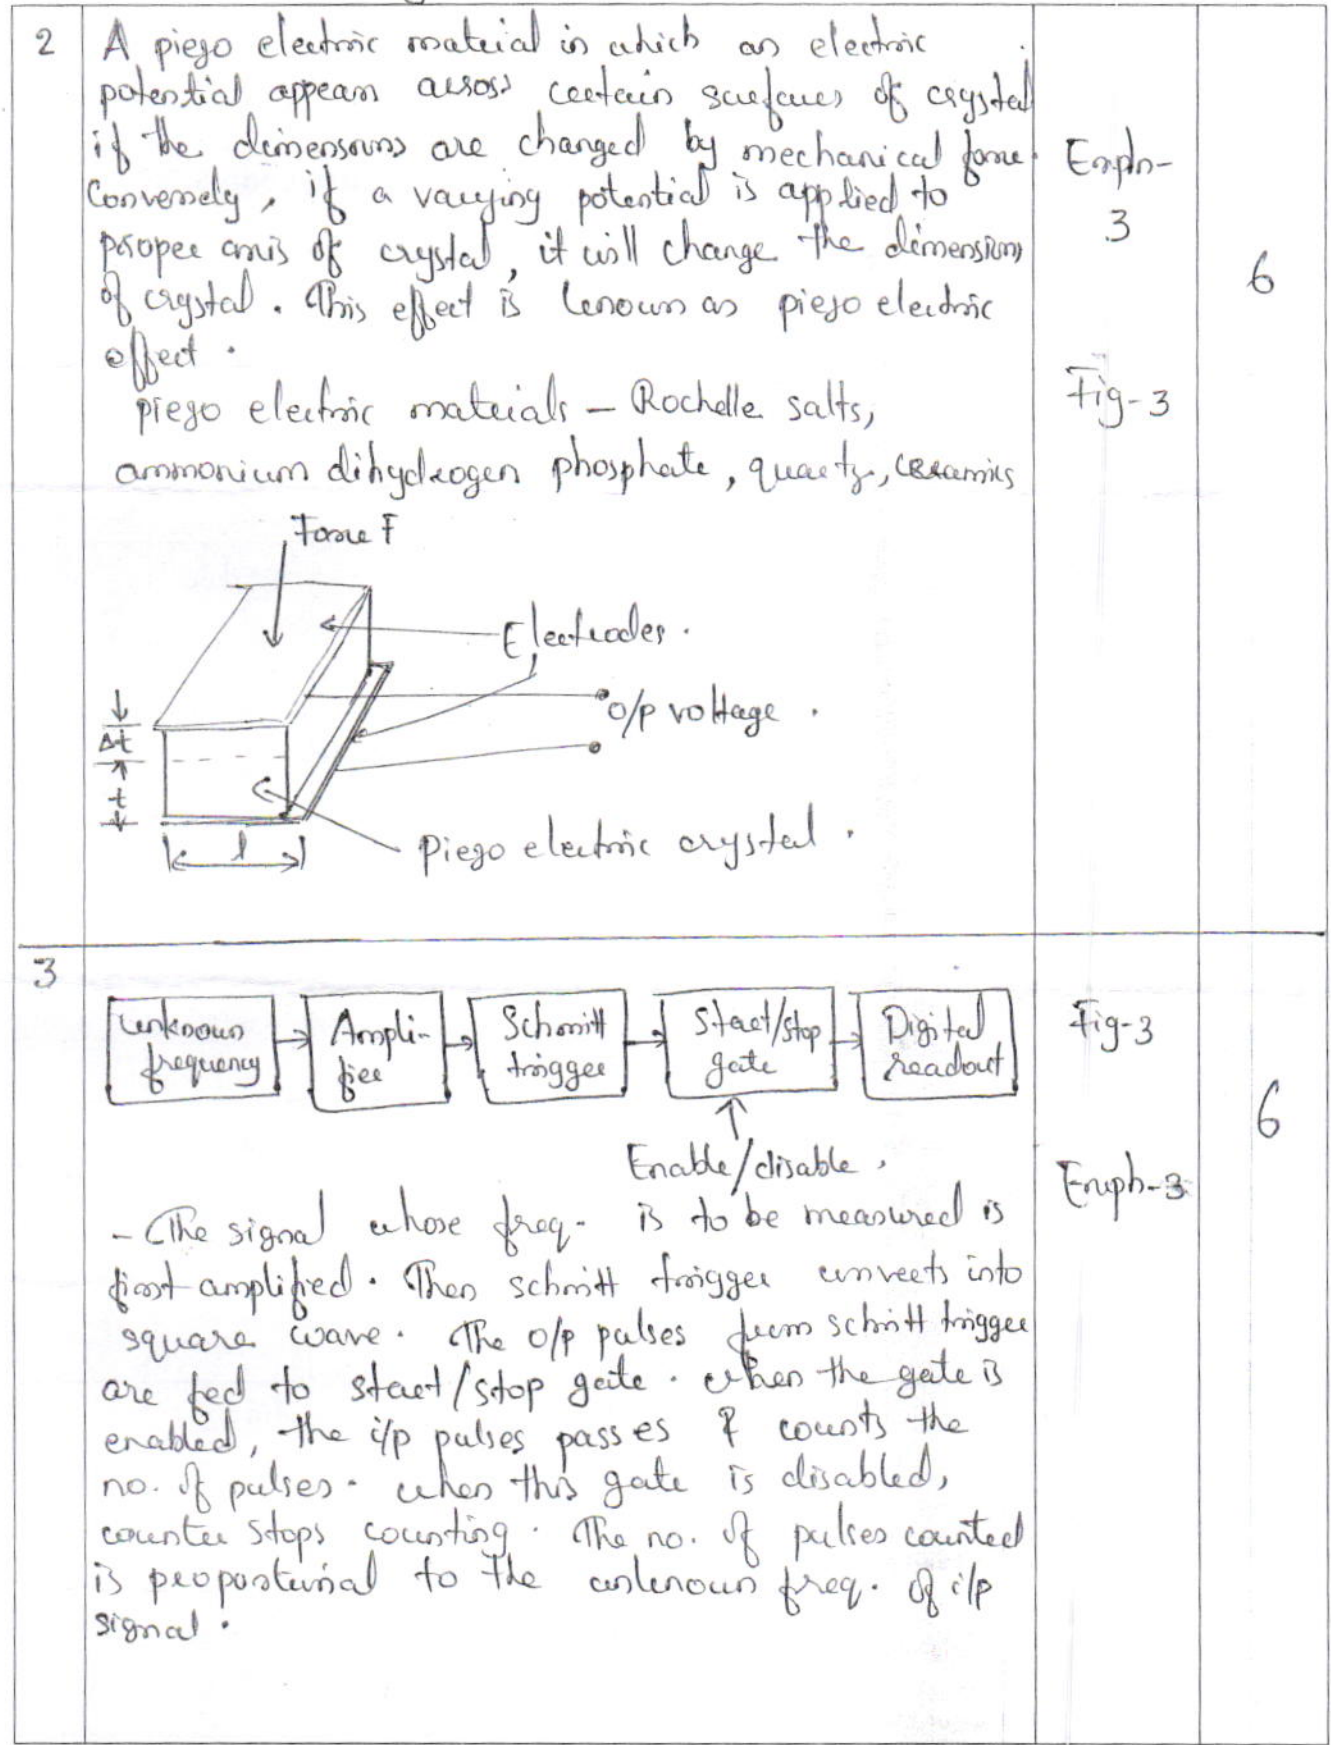 2
A piezo electric material in which an electric
potential appears across certain surfaces of crystal
if the dimensions are changed by mechanical force.
Conversely, if a varying potential is applied to
proper axis of crystal, it will change the dimensions
of crystal. This effect is known as piezo electric
effect.
Expln-
3
6
piezo electric materials - Rochelle salts,
ammonium dihydrogen phosphate, quartz, ceramics
Fig-3
Force F
Electrodes.
O/P voltage.
Δt
t
l
piezo electric crystal.
3
unknown
frequency
Ampli-
fier
Schmitt
trigger
Start/stop
gate
Digital
readout
Enable/disable.
Fig-3
6
Exph-3
- The signal whose freq. is to be measured is
first amplified. Then schmitt trigger converts into
square wave. The o/p pulses from schmitt trigger
are fed to start/stop gate. when the gate is
enabled, the i/p pulses passes & counts the
no. of pulses. when this gate is disabled,
counter stops counting. The no. of pulses counted
is proportional to the unknown freq. of i/p
signal.